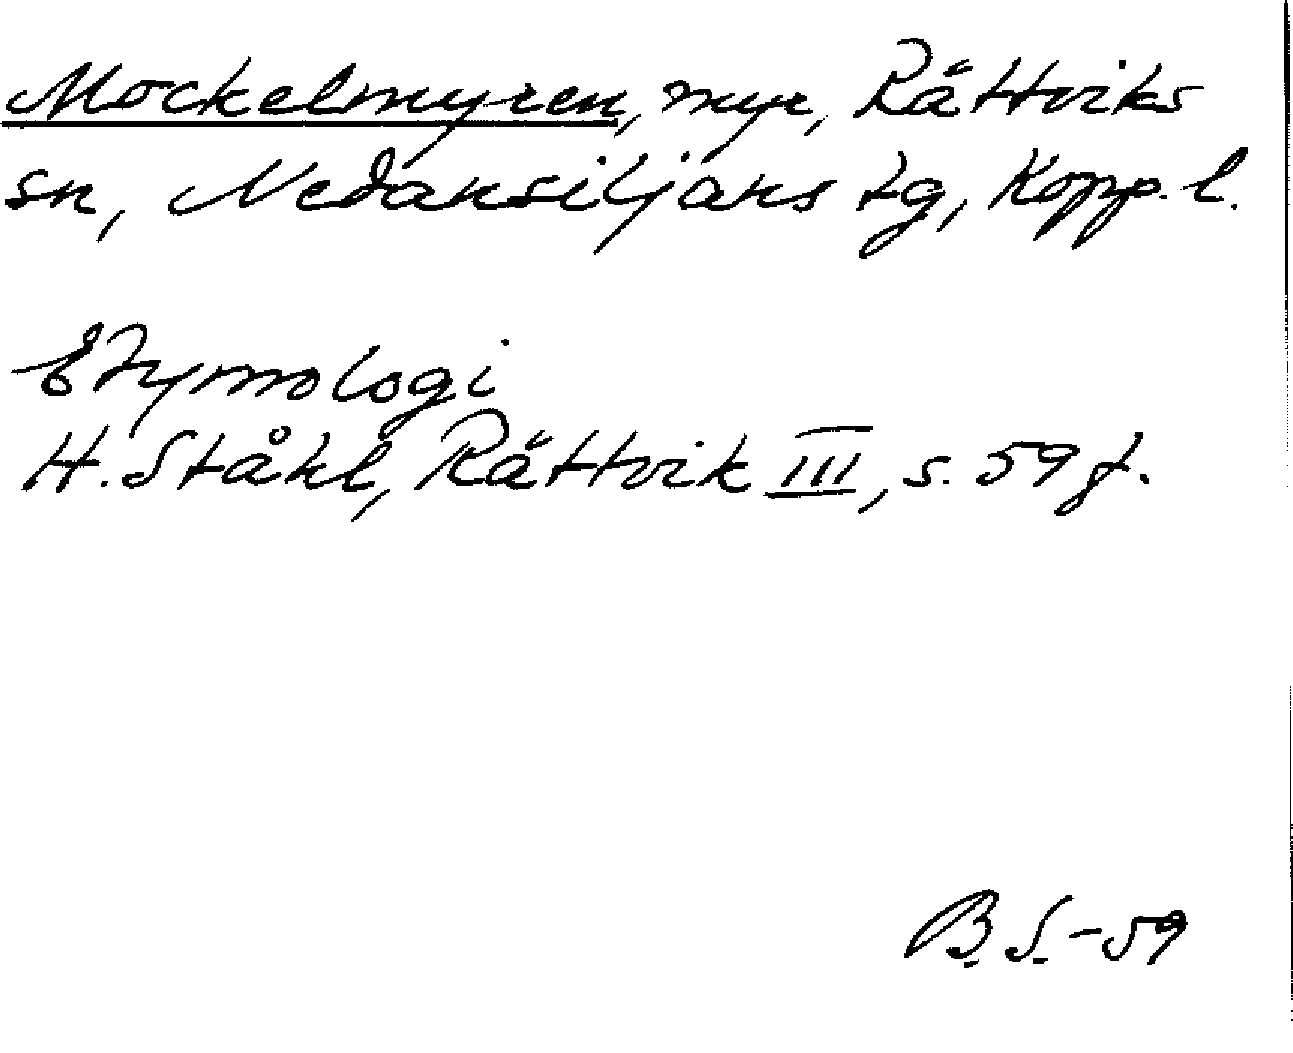 Mockelmyren, myr, Rättviks
sn, Nedansiljans tg, Kopp. l.
Etymologi
H. Ståhl, Rättvik III, s. 59 f.
B. S. -59